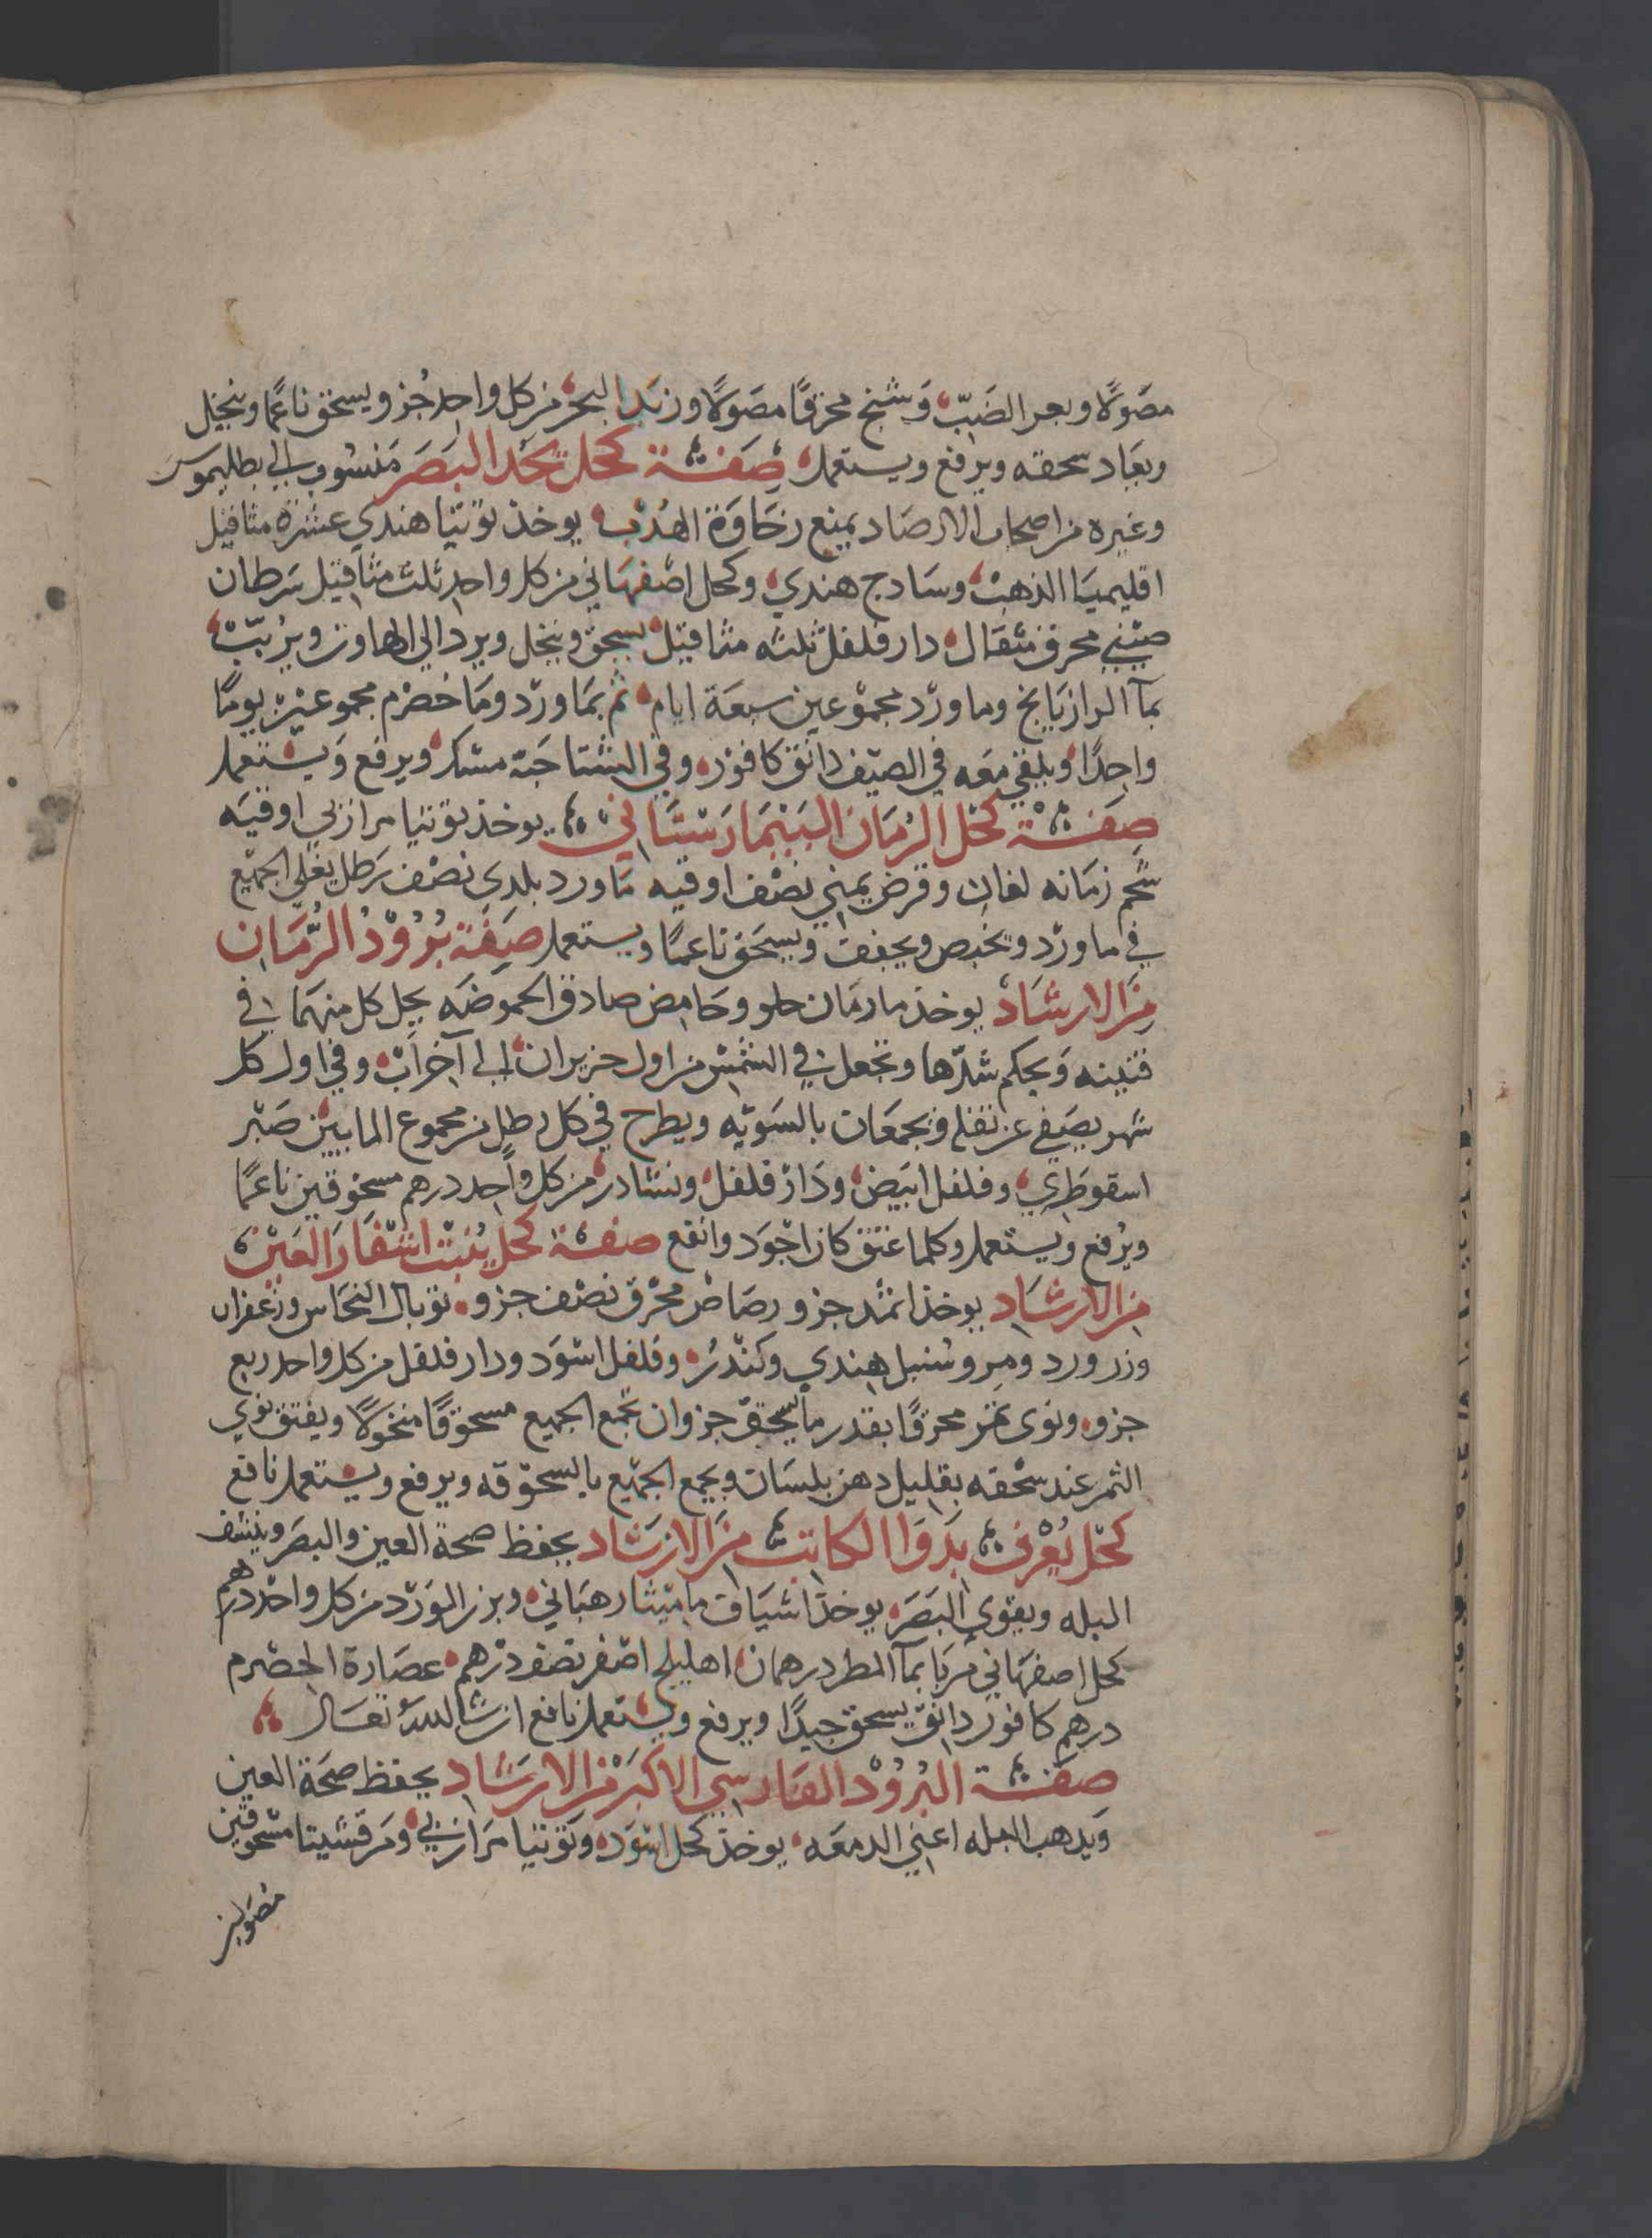 مصَولًا وبعر الضَبّ، وَشنج محرقًا مصَولًا وزبَد البحر من كل واحد جُزو ويسحق ناعمًا وينخل
ويعَاد سحقه ويرفع ويستعمل، صِفَة كحل يحد البَصَر مَنسُوب الي بطليموس
وغيره من اصحاب الارصَاد يمنع رخَاوَة الهُدْب، يوخذ توتيا هندي عشرة مثاقيل
اقليميَا الذهب، وسَادج هندي، وكحل اصفهَاني من كل واحد ثلث مثاقيل سَرطان
صيني محرق مثقال، دار فلفل ثلثه مثاقيل يسحق وينخل ويرد الي الهاون ويرُبّب،
بمآ الرازيَانج وماورد مجمُوعين سبعَة ايام، ثم بمَاورد ومَا حصرم مجموعين يومًا
واحدًا، ويلقي معَه في الصيف دانق كافور، وفي الشتا حَبة مسك، ويرفع وَيستعمل
صِفَة كحْل الرُمَان البَيْمَارَستَاني، يوخذ توتيا مرازبي اوقيَه
شحم رمَانه لفان وقرض يمني نصْف اوقيه مَاورد بلدي نصْف رَطل يغلي الجميْع
في ماورد ويخبص ويجفف ويسحَق ناعمًا ويستعمل صِفَة بَرُوْدُ الرُّمَان
مِنَ الارشَاد يوخذ ما رمَان حلو وحَامض صادق الحموضَه يجعل كل منهمَا في
قنينه وَيحكم شدّها وتجعل في الشمْس من اول حزيران الي آخر آب، وفي اول كل
شهر يصَفي عن ثفله ويجمعَان بالسَويّه ويطرح في كل رطل من مجموع المايين صَبْر
اسقوطري، وفلفل ابيَض، ودَار فلفل، ونشادر، من كل وَاحد درهم مسحوقين ناعمًا
ويُرفع ويستعمل وكلما عتق كان اجوَد وانفع صفة كحْل يُنبْت اشفَارَ العَيْن
من الارشَاد يوخذ اثمد جزو رصَاص محرَق نصْف جزو، توبال النحَاس وزعفران
وزر ورد ومر وسُنبل هندي وكنْدر، وفلفل اسوَد ودار فلفل من كل واحد ربع
جزو، ونوي تمر محرقًا بقدر ما يسحق جزوان تجمع الجميع مسحوقًا منخولًا ويفتق نوي
التمر عند سحْقه بقليل دهن بلسَان ويجمع الجميْع بالسحْق قه ويرفع ويستعمل نافع
كحْل يُعْرف بدَوَا الكاتب مِنَ الارشاد يحفظ صحة العين والبصَر وينشف
البله ويقوي البَصَر، يوخذ اشيَاف ماميْثا رهبَاني، وبزر الوَرْد من كل واحد درهم
كحل اصفهَاني مرَبا بمآ المطر درهمان، اهليلج اصْفر نصْف درْهم، عصَارة الحصْرم
درهم كافور دانق يسحق جيدًا ويرفع ويستعمل نافع ان شا الله تعَالي
صفَة البَرُوْد الفَارسي الاكبَرْ من الارشَاد يحفظ صحَة العين
وَيذهب البله اعني الدمعَه، يوخذ كحل اسوَد، وتوتيا مَرازبي، ومَرقشيتا مسْحوقين
مصَولين